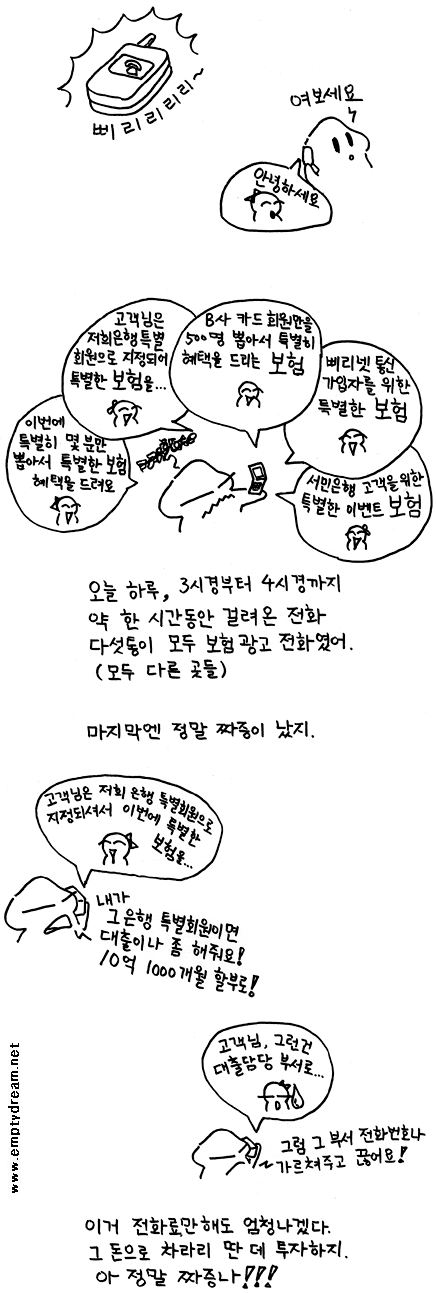 삐리리리리~
여보세요
안녕하세요
고객님은
저희은행특별
회원으로 지정되어
특별한 보험을...
B사 카드 회원만을
500명 뽑아서 특별히
혜택을 드리는 보험
삐리넷 통신
가입자를 위한
특별한 보험
이번에
특별히 몇 분만
뽑아서 특별한 보험
혜택을 드려요
서민은행 고객을 위한
특별한 이벤트 보험
오늘 하루, 3시경부터 4시경까지
약 한 시간동안 걸려온 전화
다섯통이 모두 보험 광고 전화였어.
(모두 다른 곳들)
마지막엔 정말 짜증이 났지.
고객님은 저희 은행 특별회원으로
지정되셔서 이번에 특별한
보험을...
내가
그은행 특별회원이면
대출이나 좀 해줘요!
10억 1000개월 할부로!
고객님, 그런건
대출담당 부서로...
그럼 그 부서 전화번호나
가르쳐주고 끊어요!
이거 전화료만해도 엄청나겠다.
그 돈으로 차라리 딴 데 투자하지.
아 정말 짜증나!!!
www.emptydream.net